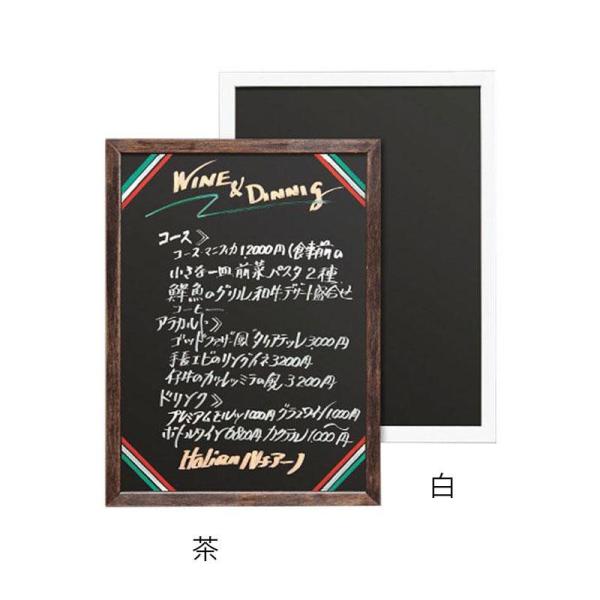 WINE & DINNIG
コース》
コース・マニフィカ12000円(食事前の
小さな一皿 前菜 パスタ2種
鮮魚のグリル 和牛 デザート盛合せ
コーヒー
アラカルト》
ゴッドファザー風 タリアテッレ 3,000円
手長エビのリングイネ 3200円
仔牛のカツレツ ミラノ風 3200円
ドリンク》
プレミアムモルツ 1000円 グラスワイン 1000円
ボトルワイン 6800円 カクテル 1000円〜
Italian
白
茶